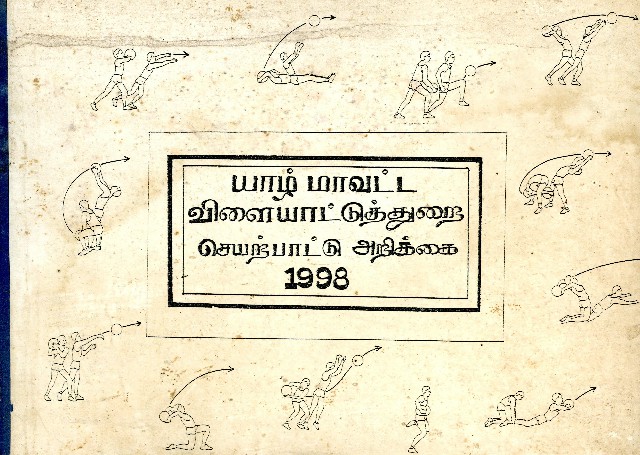 யாழ் மாவட்ட
விளையாட்டுத்துறை
செயற்பாட்டு அறிக்கை
1998